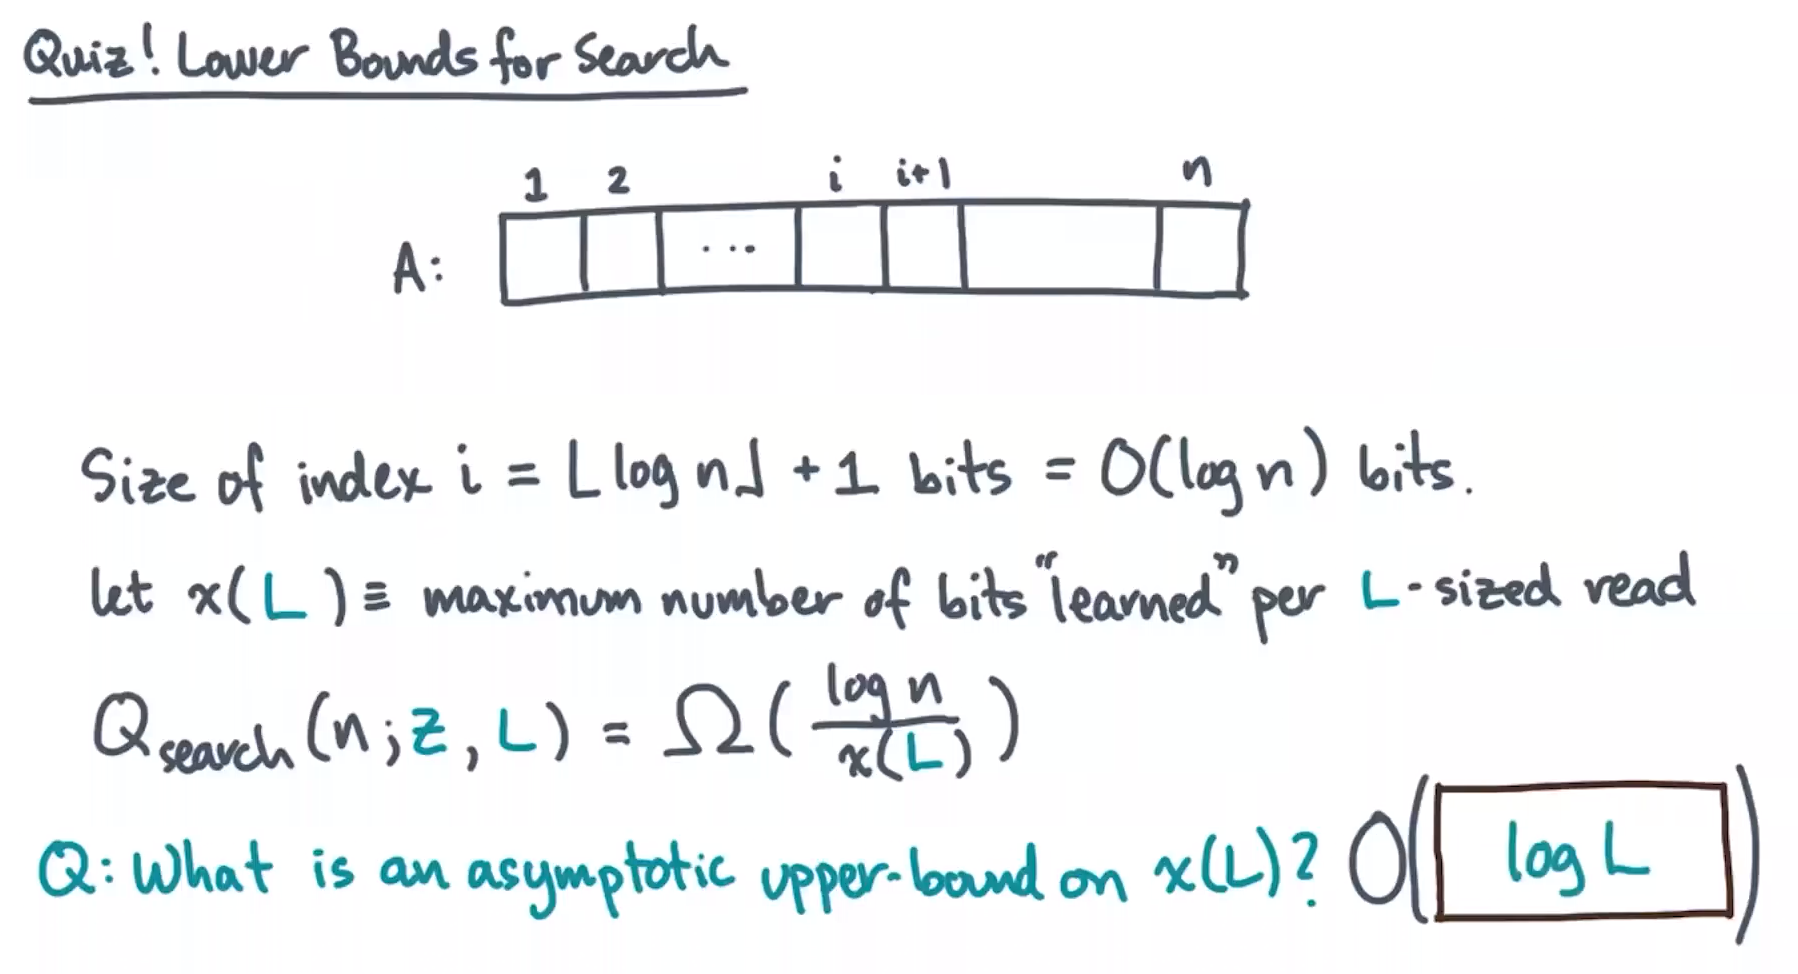 Quiz! Lower Bounds for Search
1 2 i i+1 n
A: ...
Size of index i = ⌊log n⌋ + 1 bits = O(log n) bits.
let x(L) ≡ maximum number of bits "learned" per L-sized read
Qsearch(n; Z, L) = Ω(log n / x(L))
Q: What is an asymptotic upper-bound on x(L)? O(log L)